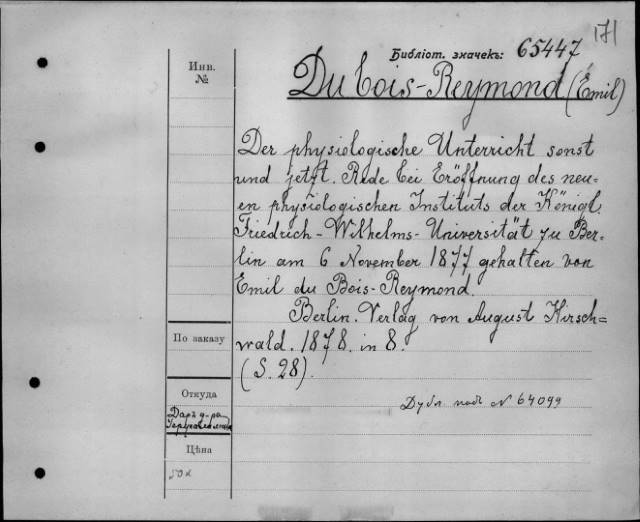 171
Библіот. значекъ: 65447
Инв.
№
Du bois-Reymond (Emil)
Der physiologische Unterricht sonst
und jetzt. Rede bei Eröffnung des neu=
en physiologischen Instituts der Königl.
Friedrich-Wilhelms-Universität zu Ber=
lin am 6 November 1877 gehalten von
Emil du Bois-Reymond.
Berlin. Verlag von August Hirsch=
wald. 1878. in 8.
(S. 28).
По заказу
Откуда
Даръ д-ра
Дубл. подъ № 64099
Цѣна
50к